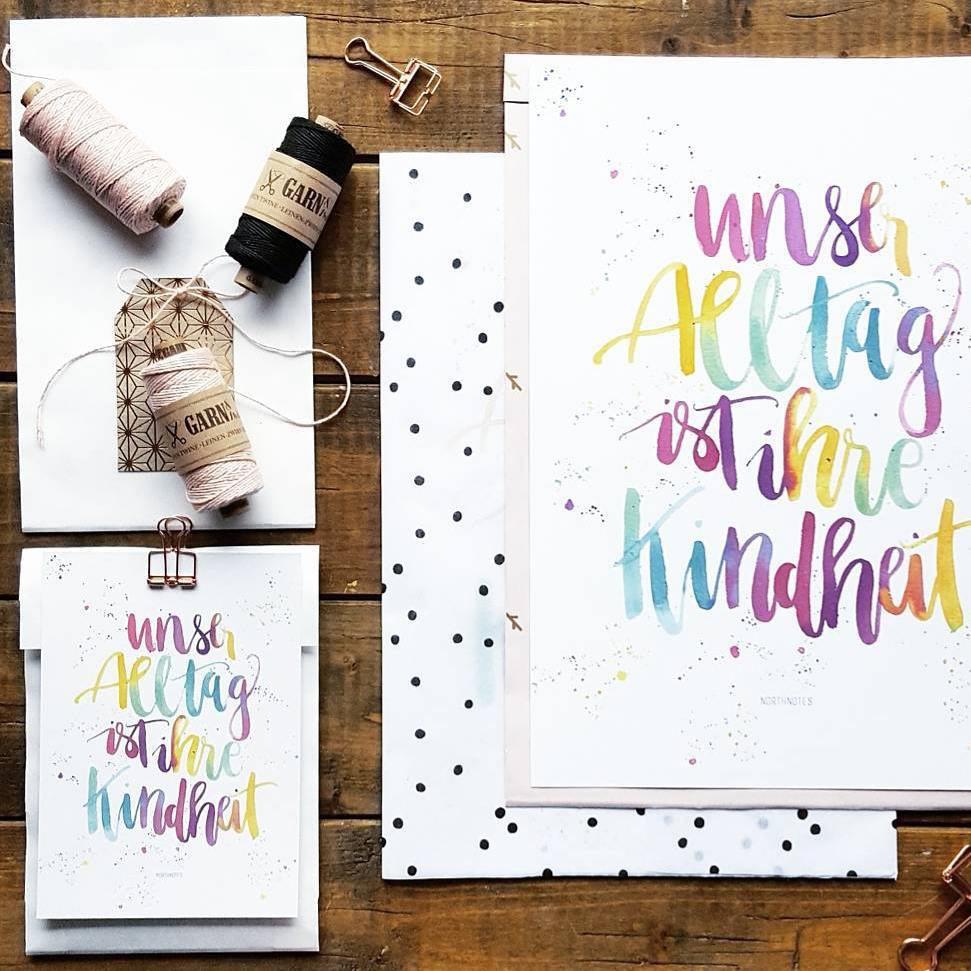 GARN
TWINE • LEINEN-ZWIRN
GARN
TWINE • LEINEN-ZWIRN
unser
Alltag
ist ihre
Kindheit
NORTHNOTES
unser
Alltag
ist ihre
Kindheit
NORTHNOTES